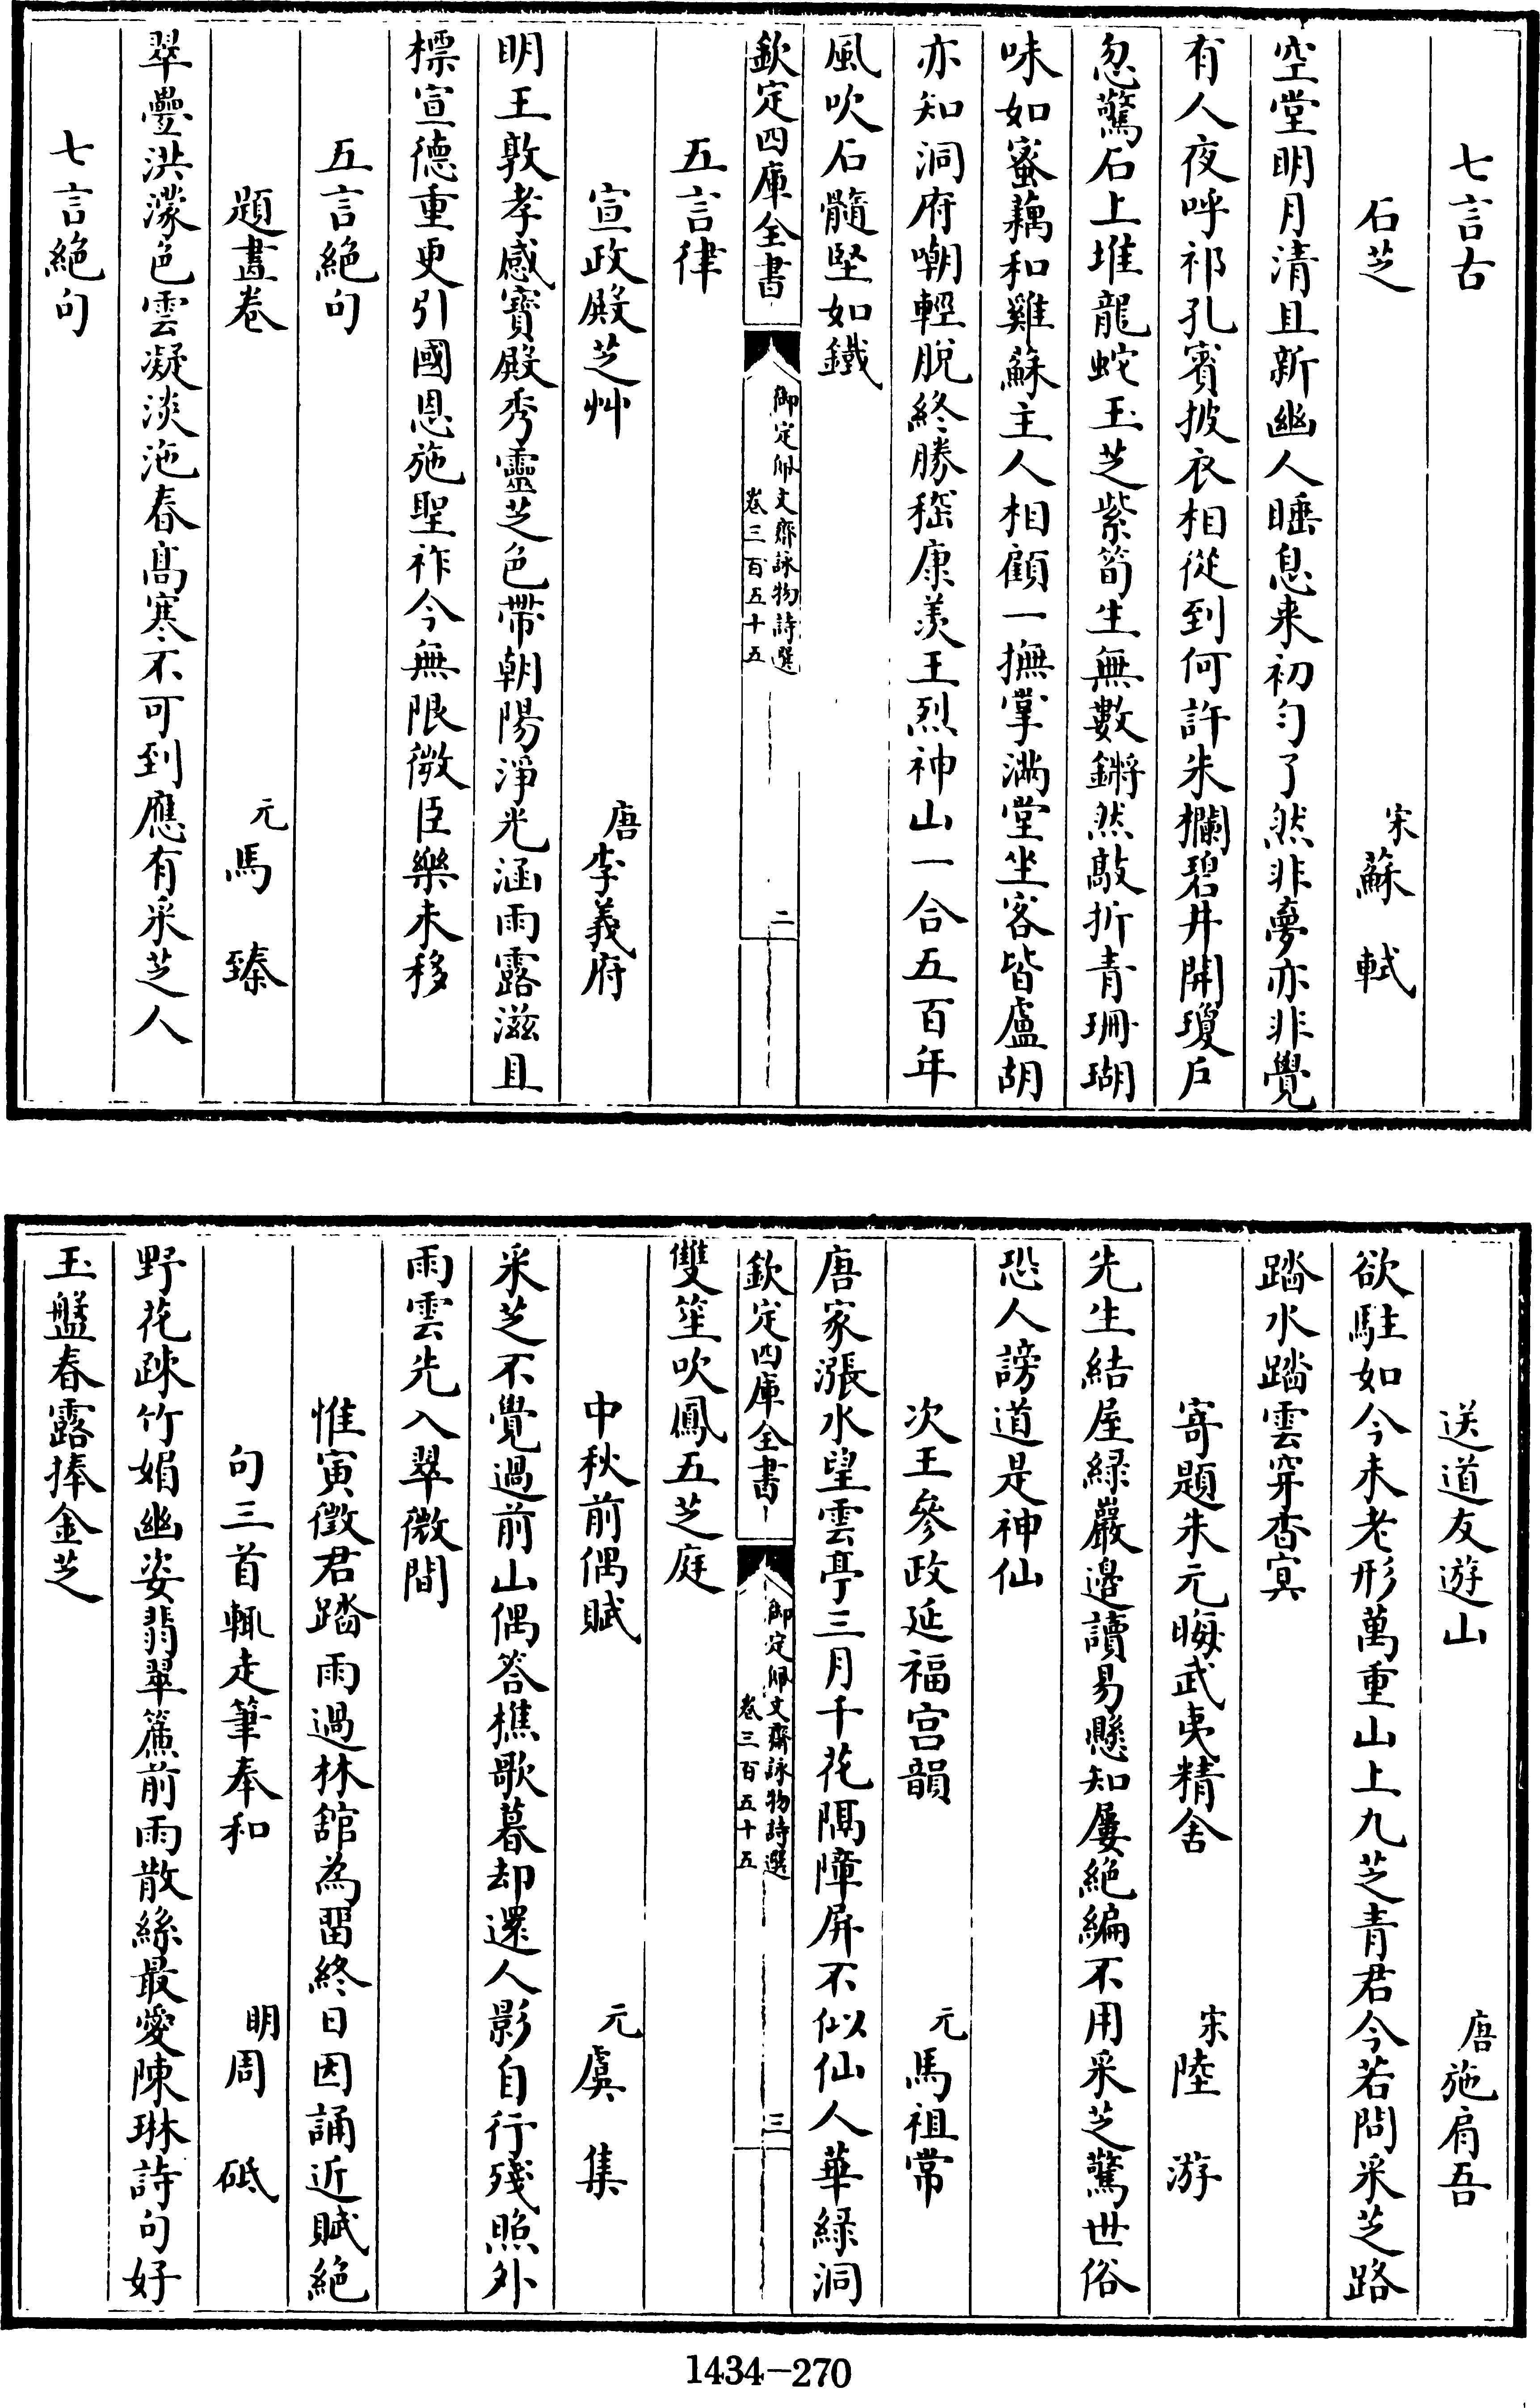 七言古
石芝 宋蘇軾
空堂明月清且新幽人睡息来初勻了然非夢亦非覺
有人夜呼祁孔賓披衣相從到何許朱欄碧井開瓊戶
忽驚石上堆龍蛇玉芝紫筍生無數鏘然敲折青珊瑚
味如蜜藕和雞蘇主人相顧一撫掌滿堂坐客皆盧胡
亦知洞府嘲輕脫終勝嵇康羡王烈神山一合五百年
風吹石髓堅如鐵
欽定四庫全書 御定佩文齋詠物詩選 卷三百五十五 二
五言律
宣政殿芝艸 唐李義府
明王敦孝感寶殿秀靈芝色帶朝陽淨光涵雨露滋且
標宣德重更引國恩施聖祚今無限微臣樂未移
五言絶句
題畫卷 元馬臻
翠疊洪濛色雲凝淡沲春髙寒不可到應有采芝人
七言絶句
送道友遊山 唐施肩吾
欲駐如今未老形萬重山上九芝青君今若問采芝路
踏水踏雲穿杳冥
寄題朱元晦武夷精舍 宋陸游
先生結屋緑巖邉讀易懸知屢絶編不用采芝驚世俗
恐人謗道是神仙
次王參政延福宫韻 元馬祖常
唐家漲水望雲亭三月千花隔障屏不似仙人華緑洞
欽定四庫全書 御定佩文齋詠物詩選 卷三百五十五 三
雙笙吹鳳五芝庭
中秋前偶賦 元虞集
采芝不覺過前山偶答樵歌暮却還人影自行殘照外
雨雲先入翠微間
惟寅徵君踏雨過林舘為留終日因誦近賦絶
句三首輒走筆奉和 明周砥
野花疎竹媚幽姿翡翠簾前雨散絲最愛陳琳詩句好
玉盤春露捧金芝
1434-270